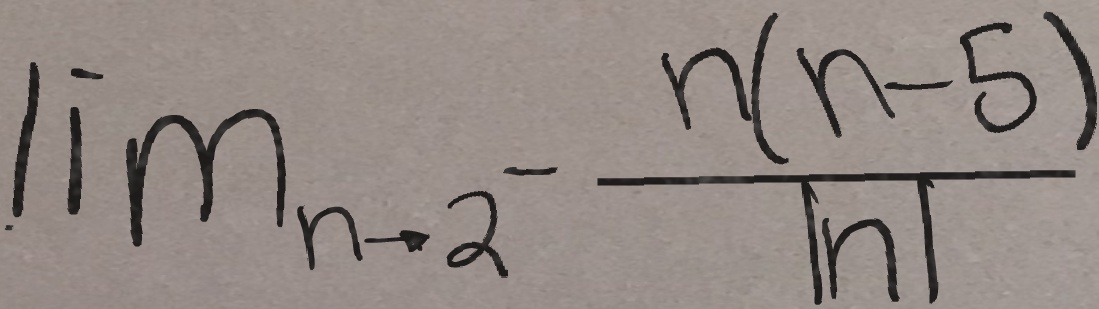 lim_{n→2^-} \frac{n(n-5)}{|n|}